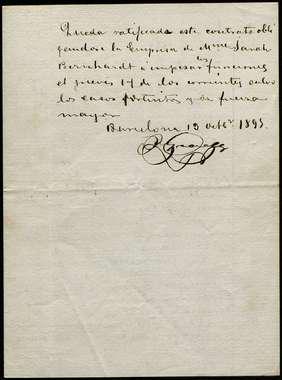 Queda ratificado este contrato obli
gandose la Empresa de Mme Sarah
Bernhardt á empesar las funciones
el jueves 17 de los corrientes salvo
los casos fortuitos y de fuerza
mayor
Barcelona 13 Octe 1895.